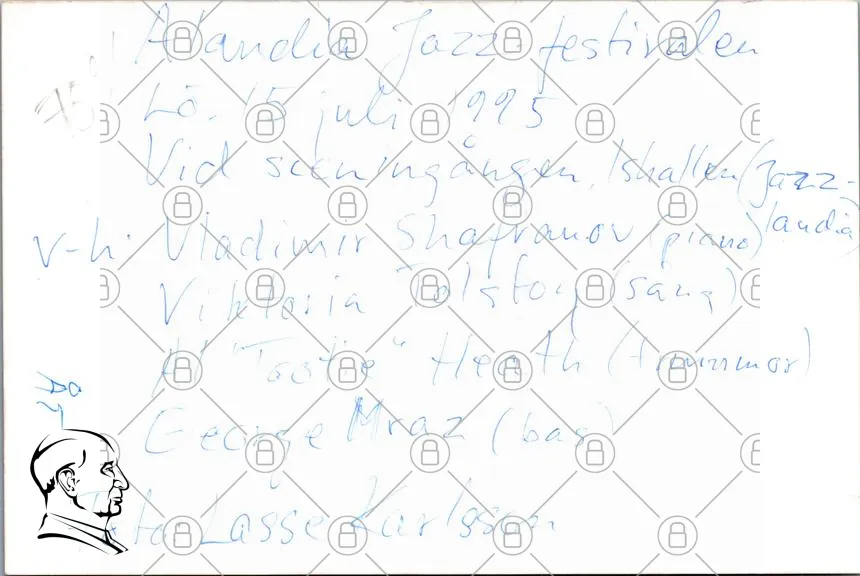 Ålandia Jazz festivalen
Lö. 15 juli 1995
Vid sceningången, Ishallen (Jazz-
landia)
v-h. Vladimir Shafranov (piano)
Viktoria Tolstoy (sång)
Al "Tootie" Heath (trummor)
George Mraz (bas)
Foto Lasse Karlsson
95